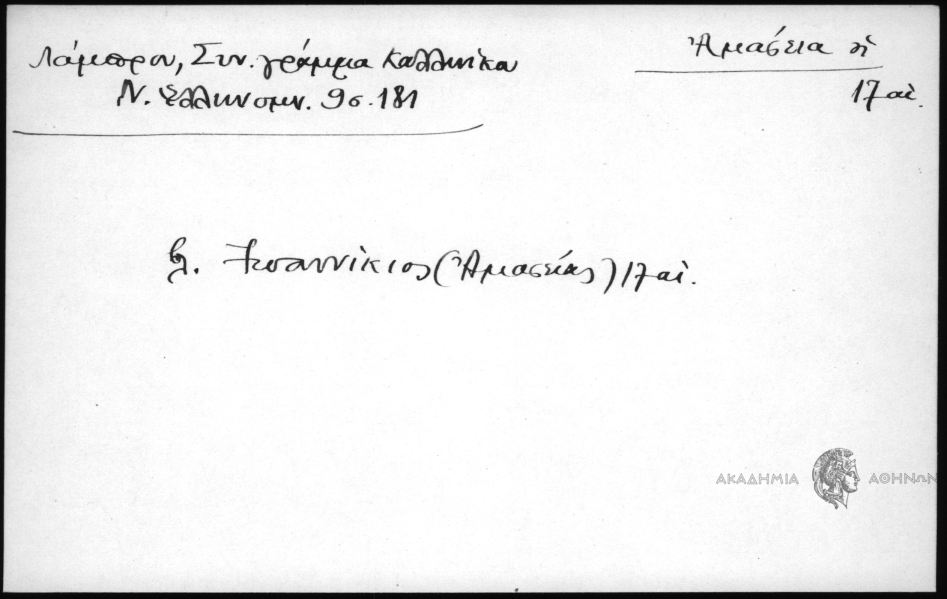 Λάμπρου, Συν. γράμμα Καλλινίκου
Ν. Ἑλληνομν. 9 σ. 181
Ἀμάσεια ἡ
17 αἰ.
βλ. Ἰωαννίκιος (Ἀμασείας) 17 αἰ.
ΑΚΑΔΗΜΙΑ ΑΘΗΝΩΝ